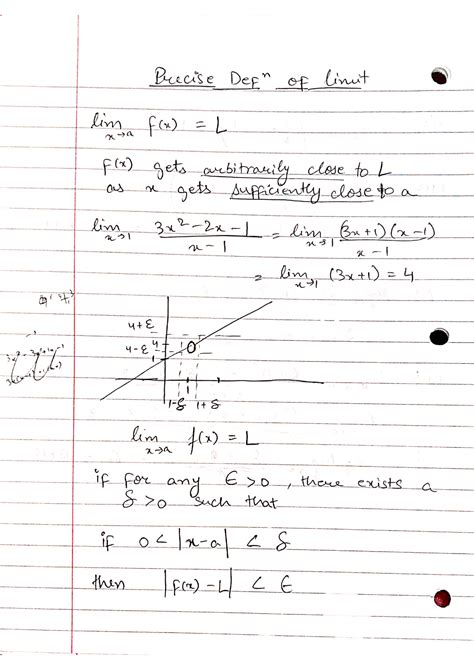 Precise Defⁿ of limit
lim x→a f(x) = L
f(x) gets arbitrarily close to L
as x gets sufficiently close to a
lim x→1 3x²-2x-1 / x-1 = lim x→1 (3x+1)(x-1) / x-1
= lim x→1 (3x+1) = 4
4+ε
4-ε 4
1
1-δ 1 1+δ
lim x→a f(x) = L
if for any ε>0, there exists a
δ>0 such that
if 0<|x-a| < δ
then |f(x)-L| < ε